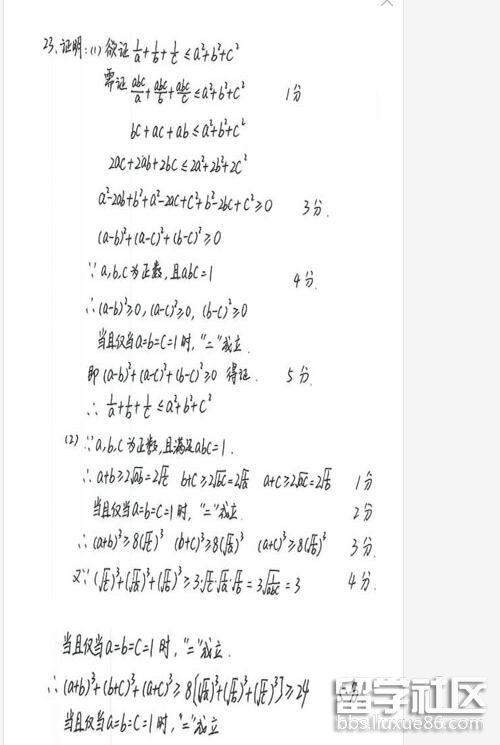 23、证明:(1) 欲证 1/a+1/b+1/c≤a²+b²+c²
需证 abc/a+abc/b+abc/c≤a²+b²+c² 1分
bc+ac+ab≤a²+b²+c²
2ac+2ab+2bc≤2a²+2b²+2c²
a²-2ab+b²+a²-2ac+c²+b²-2bc+c²≥0 3分.
(a-b)²+(a-c)²+(b-c)²≥0
∵a,b,c为正数,且abc=1 4分.
∴(a-b)²≥0, (a-c)²≥0, (b-c)²≥0
当且仅当a=b=c=1时,"="成立.
即(a-b)²+(a-c)²+(b-c)²≥0 得证. 5分.
∴ 1/a+1/b+1/c≤a²+b²+c²
(2) ∵a,b,c为正数,且满足abc=1.
∴a+b≥2√ab=2√(1/c) b+c≥2√bc=2√(1/a) a+c≥2√ac=2√(1/b) 1分
当且仅当a=b=c=1时,"="成立. 2分
∴(a+b)³≥8(√(1/c))³ (b+c)³≥8(√(1/a))³ (a+c)³≥8(√(1/b))³ 3分.
又∵(√(1/c))³+(√(1/a))³+(√(1/b))³≥3·√(1/c)·√(1/a)·√(1/b)=3√(1/abc)=3 4分.
当且仅当a=b=c=1时,"="成立.
∴(a+b)³+(b+c)³+(a+c)³≥8[(√(1/a))³+(√(1/b))³+(√(1/c))³]≥24
当且仅当a=b=c=1时,"="成立
留学社区
bbs.liuxue86.com